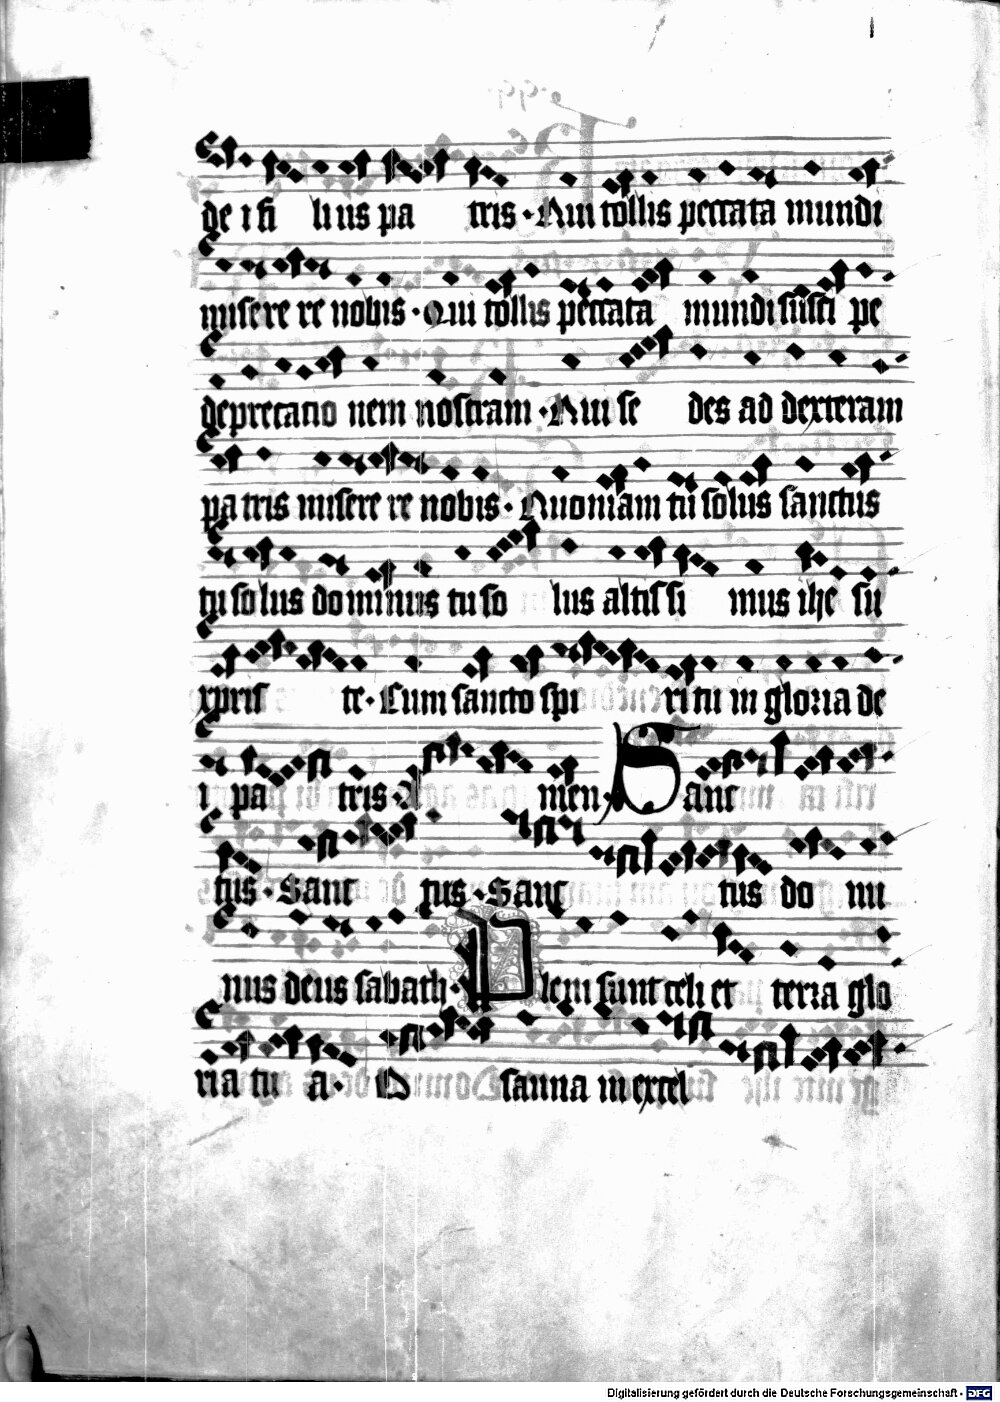 de i fi lius pa tris · Qui tollis peccata mundi
misere re nobis · Qui tollis peccata mundi susci pe
deprecatio nem nostram · Qui se des ad dexteram
pa tris misere re nobis · Quoniam tu solus sanctus
tu solus dominus tu so lus altissi mus ihe su
xpris te · Cum sancto spi ri tu in gloria de
i pa tris · A men · Sanc
tus · Sanc tus · Sanc tus do mi
nus deus sabath · Pleni sunt celi et terra glo
ria tu a · O sanna in excel
Digitalisierung gefördert durch die Deutsche Forschungsgemeinschaft - DFG